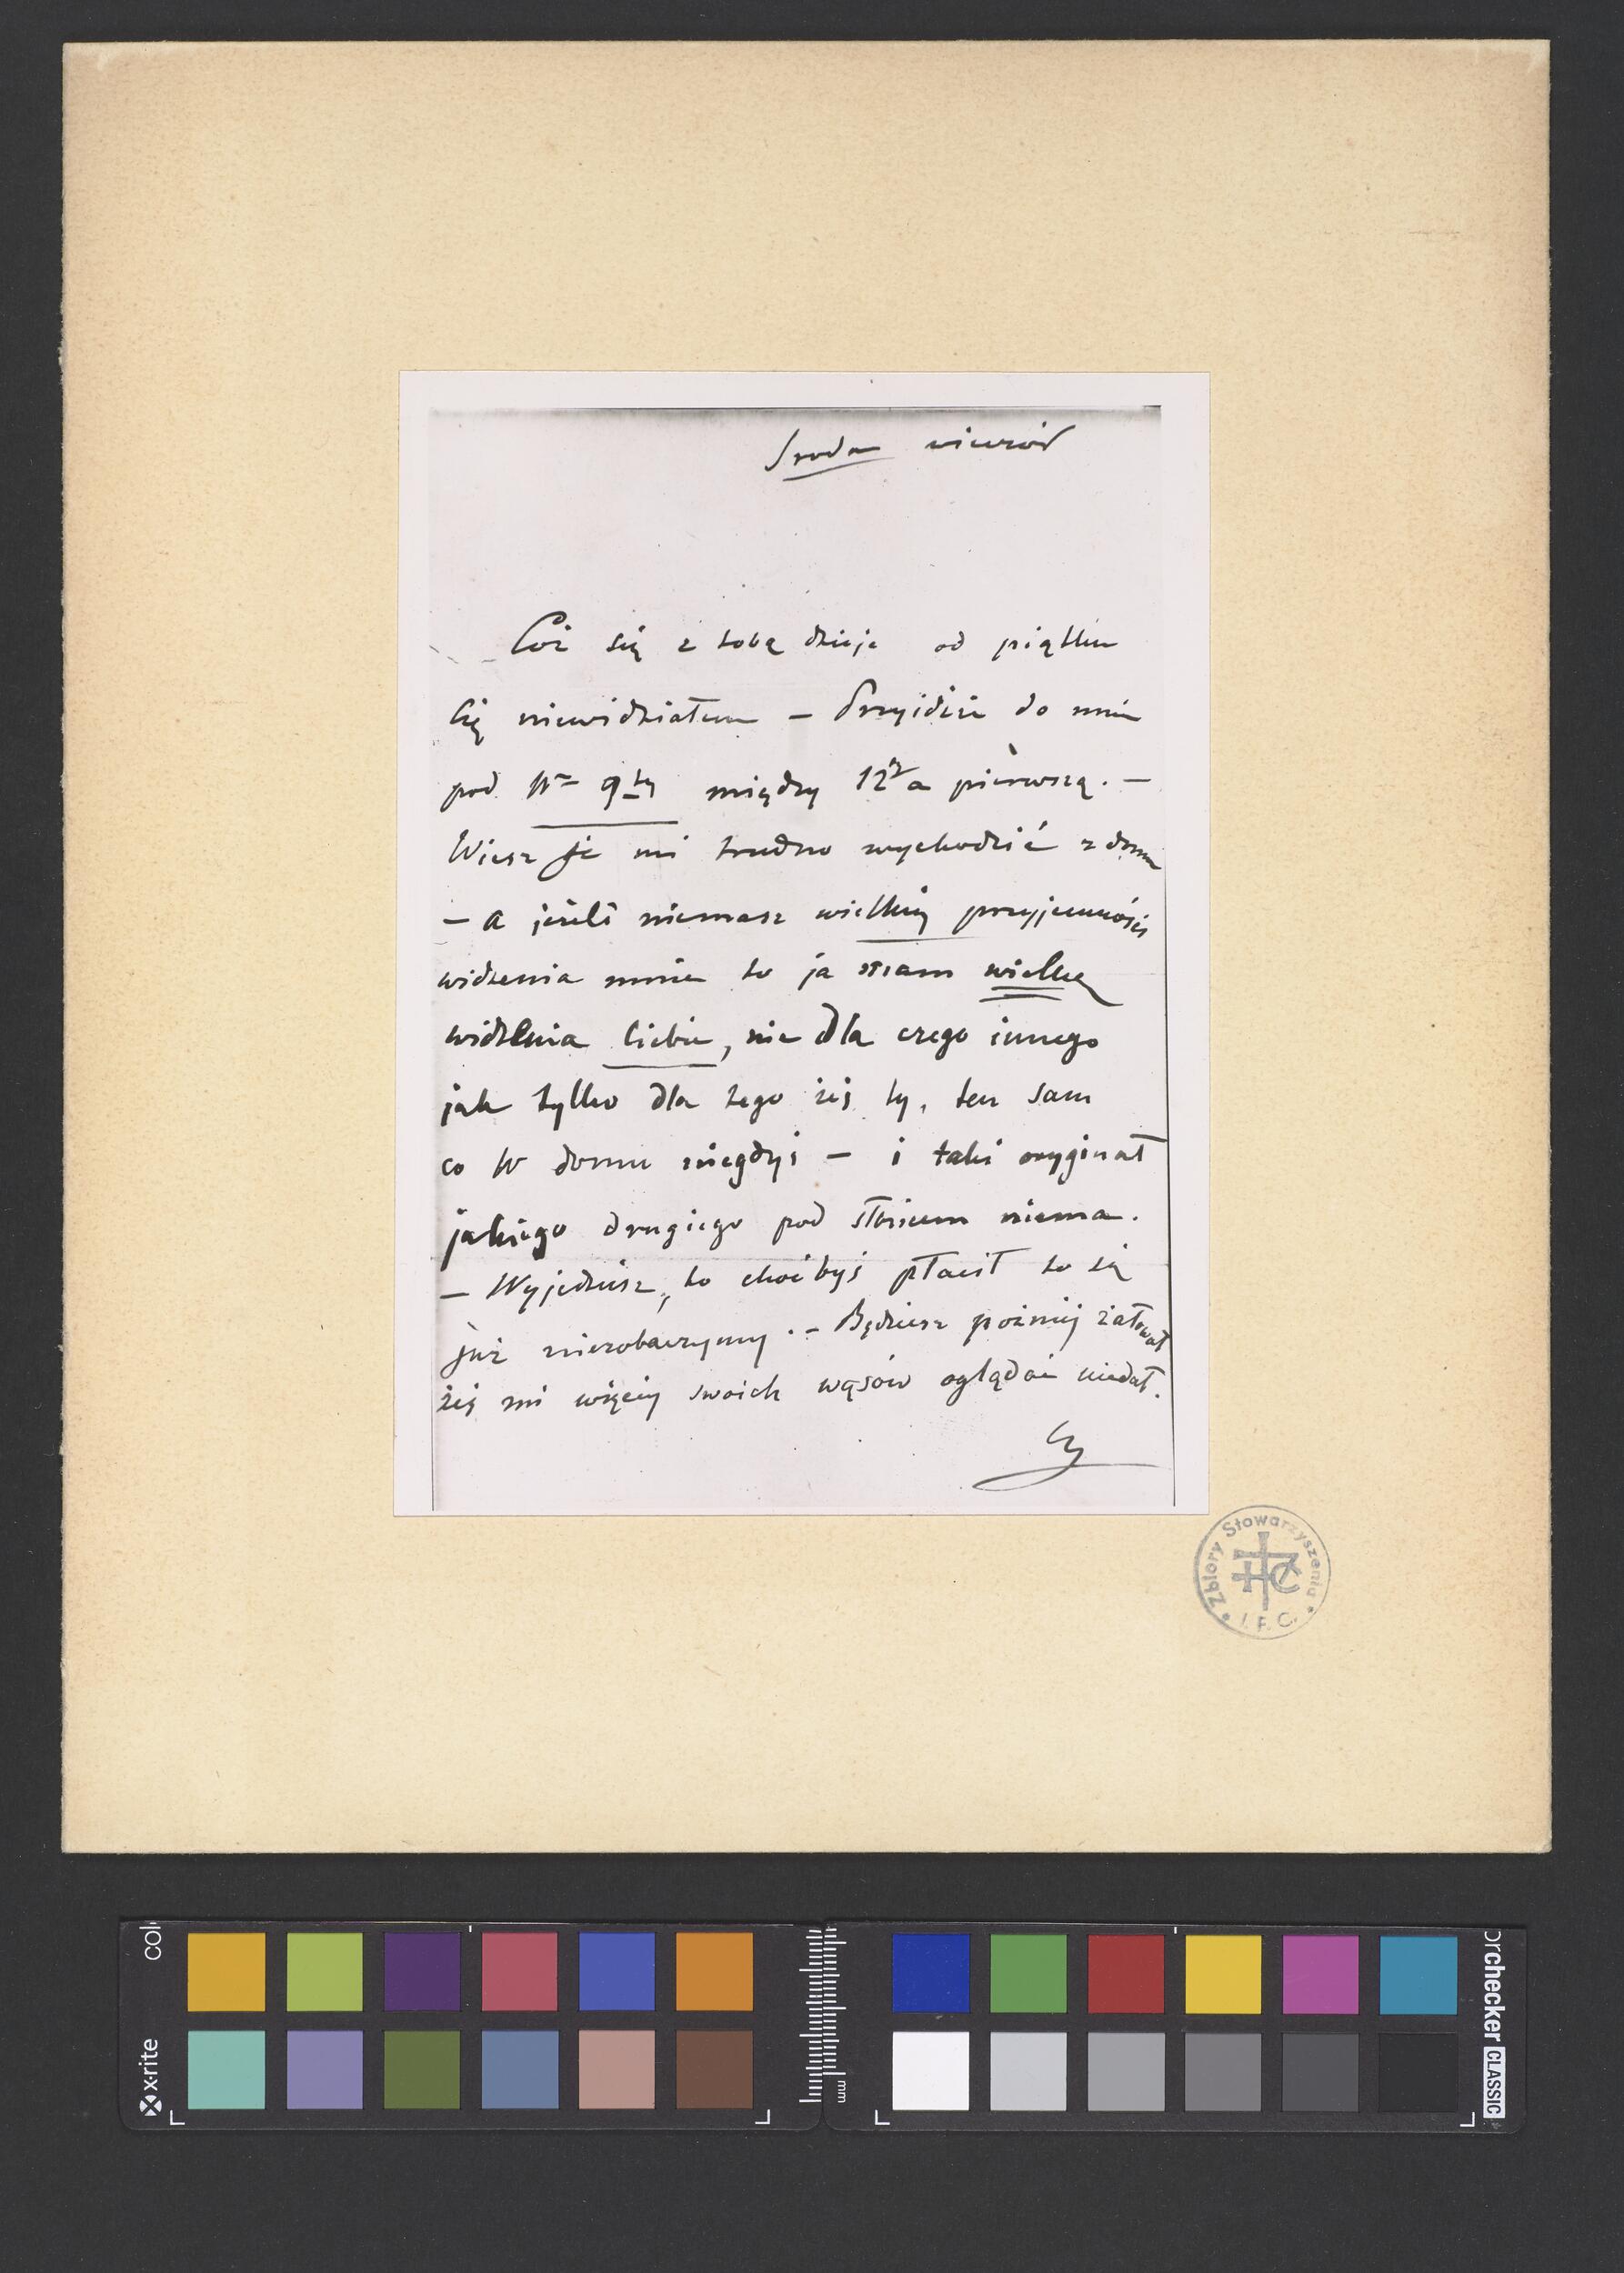 Sroda wieczór
Cóż się z tobą dzieje od piątku
Cię niewidziałem – Przyidźie do mnie
pod Nr 9ty między 12 a pierwszą. –
Wiesz że mi trudno wychodzić z domu
– a jeżeli niemasz wielkiej przyjemności
widzenia mnie to ja mam wielką
widzenia Ciebie, nie dla czego innego
jak tylko dla tego żeś ty, ten sam
co w domu niegdyś – i taki oryginał
jakiego drugiego pod słońcem niema.
– Wyjedziesz, to choćbyś płacił to się
już niezobaczymy. – Będziesz pożniej żałował
żeś mi więcej swoich wąsów oglądać niedał.
Zbiory Stowarzyszenia
I. F. C.
x·rite
mm
checker CLASSIC